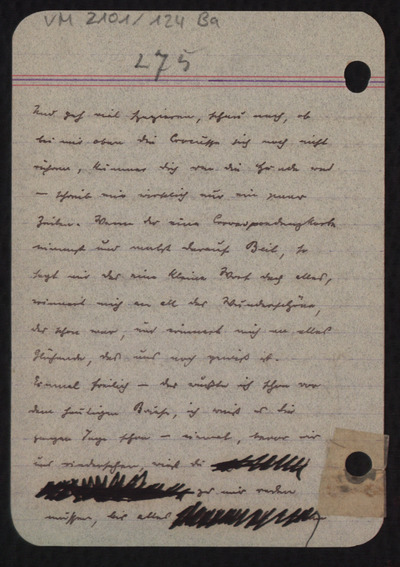 VM 2101/124 Ba
275
Und geh viel spazieren, schau nach, ob
bei mir oben die Crocusse sich noch nicht
rühren, kümmer dich um die Hunde und
— schreib mir wirklich nur ein paar
Zeilen. Wenn du eine Correspondenzkarte
nimmst und malst darauf Beil, so
sagt mir das eine kleine Wort doch alles,
erinnert mich an all das Wunderschöne,
das schon war, und erinnert mich an alles
Glühende, das uns noch gewiß ist.
Einmal freilich — das wußte ich schon vor
dem heutigen Briefe, ich weiß es die
ganzen Tage schon — einmal, bevor wir
uns wiedersehen, wirst du
zu mir reden
müssen, bis alles